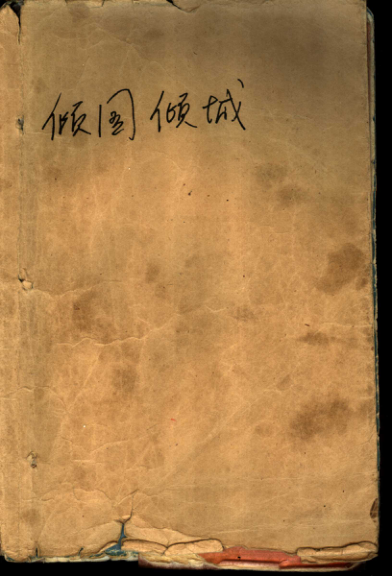 倾国倾城